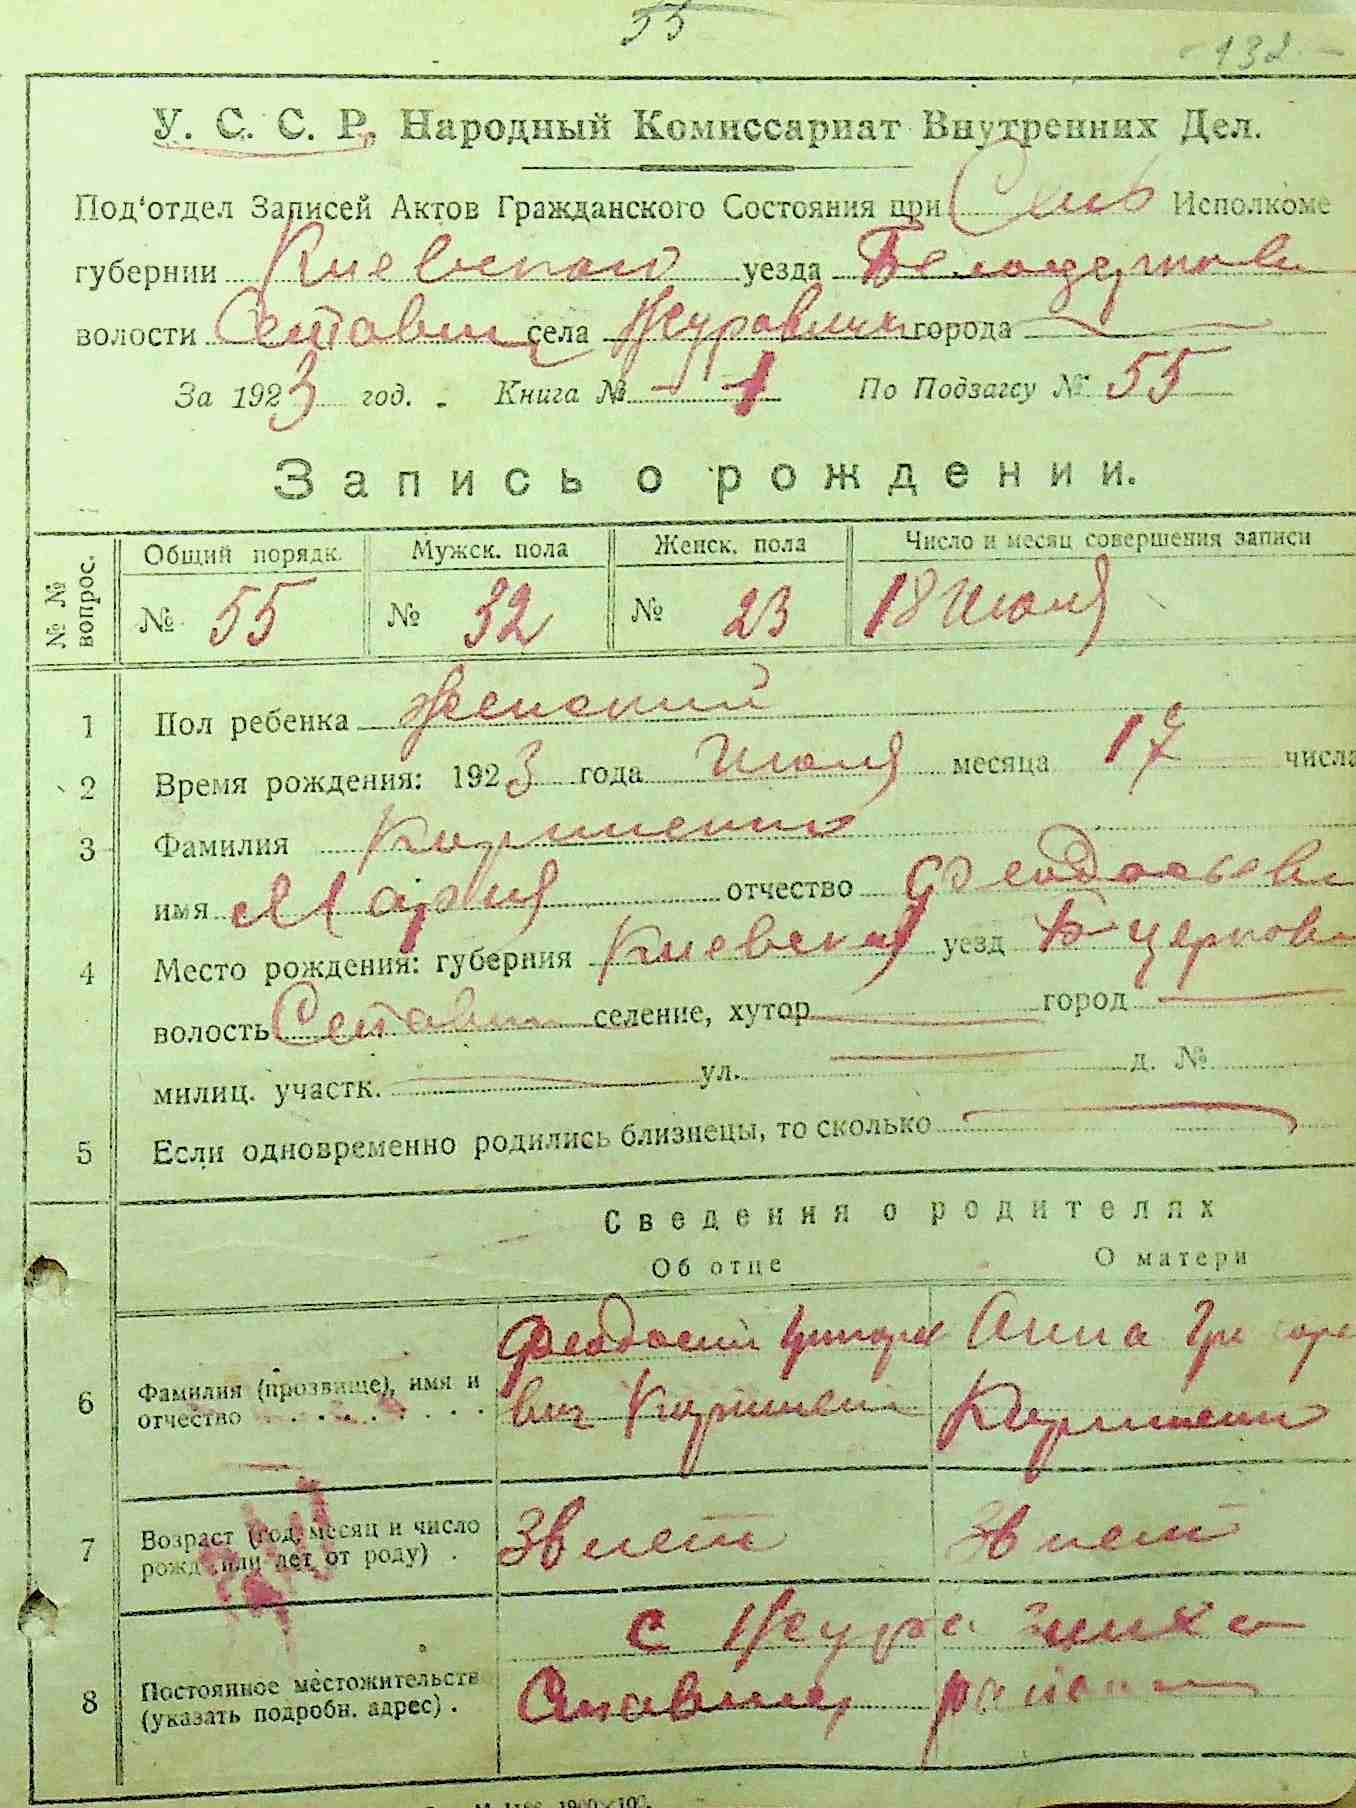 55
132
У. С. С. Р. Народный Комиссариат Внутренних Дел.
Под'отдел Записей Актов Гражданского Состояния при Сель Исполкоме
губернии Киевского уезда Белоцерковс
волости села города
За 1923 год. Книга № 1 По Подзагсу № 55
Запись о рождении.
№ № вопрос. Общий порядк. Мужск. пола Женск. пола Число и месяц совершения записи
№ 55 № 32 № 23 18 Июля
1 Пол ребенка женский
2 Время рождения: 1923 года Июля месяца 17 числа
3 Фамилия
имя Мария отчество Феодосьевн
4 Место рождения: губерния Киевская уезд Б-церковс
волость селение, хутор город
милиц. участк. ул. д. №
5 Если одновременно родились близнецы, то сколько
Сведения о родителях
Об отце О матери
6 Фамилия (прозвище), имя и отчество Феодосий Анна
7 Возраст (год, месяц и число рожд. или лет от роду) лет лет
8 Постоянное местожительств (указать подробн. адрес) с
район